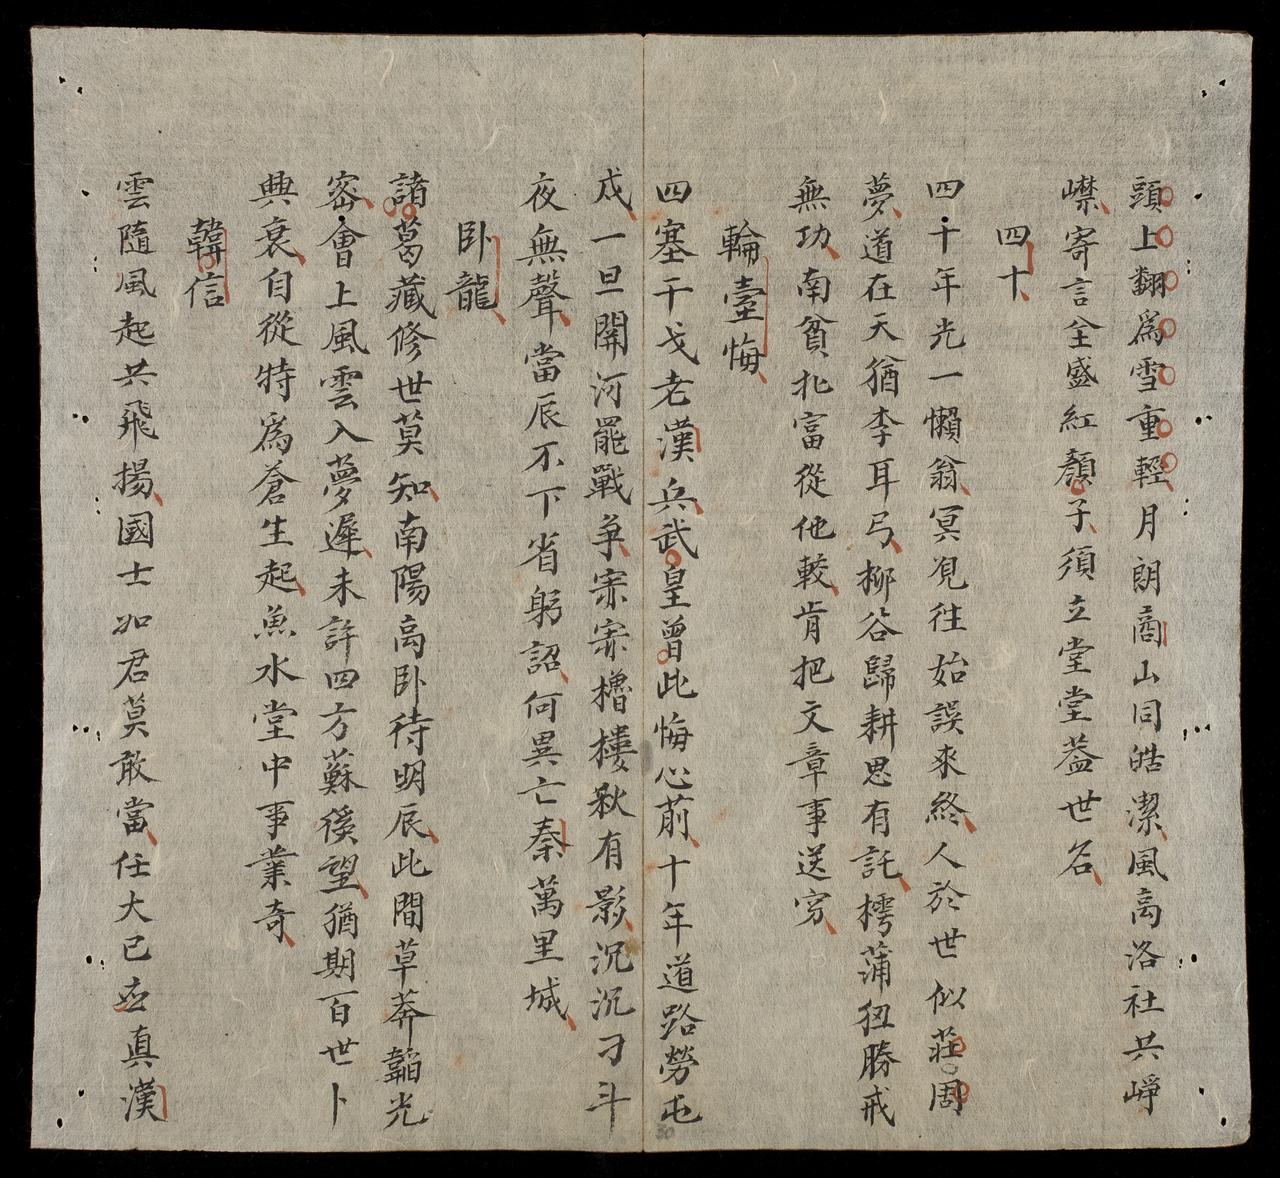 頭上翻爲雪重輕月朗商山同皓潔風高洛社共崢
嶸寄言全盛紅顏子須立堂堂蓋世名
四十
四十年光一懶翁冥冥往始誤來終人於世似莊周
夢道在天猶李耳弓柳谷歸耕思有託樗蒲狃勝戒
無功南貧北富從他較肯把文章事送窮
輪臺悔
四塞干戈老漢兵武皇曾此悔心萠十年道路勞屯
戍一旦關河罷戰爭寀寀櫓樓秋有影沉沉刁斗
夜無聲當辰不下省躬詔何異亡秦萬里城
卧龍
諸葛藏修世莫知南陽高卧待明辰此間草莽韜光
密會上風雲入夢遲未許四方蘇後望猶期百世卜
興衰自從特爲蒼生起魚水堂中事業奇
韓信
雲隨風起共飛揚國士如君莫敢當任大已應真漢